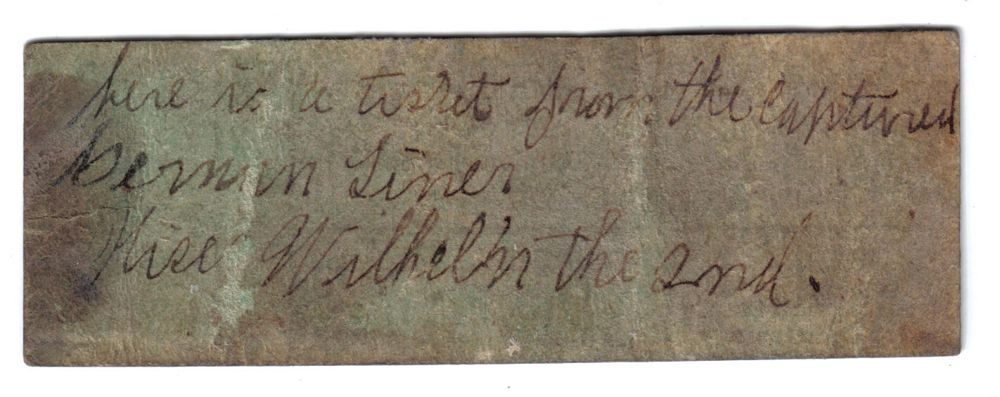 here is a ticket from the captured
German Liner
Kiser Wilhelm the 2nd.